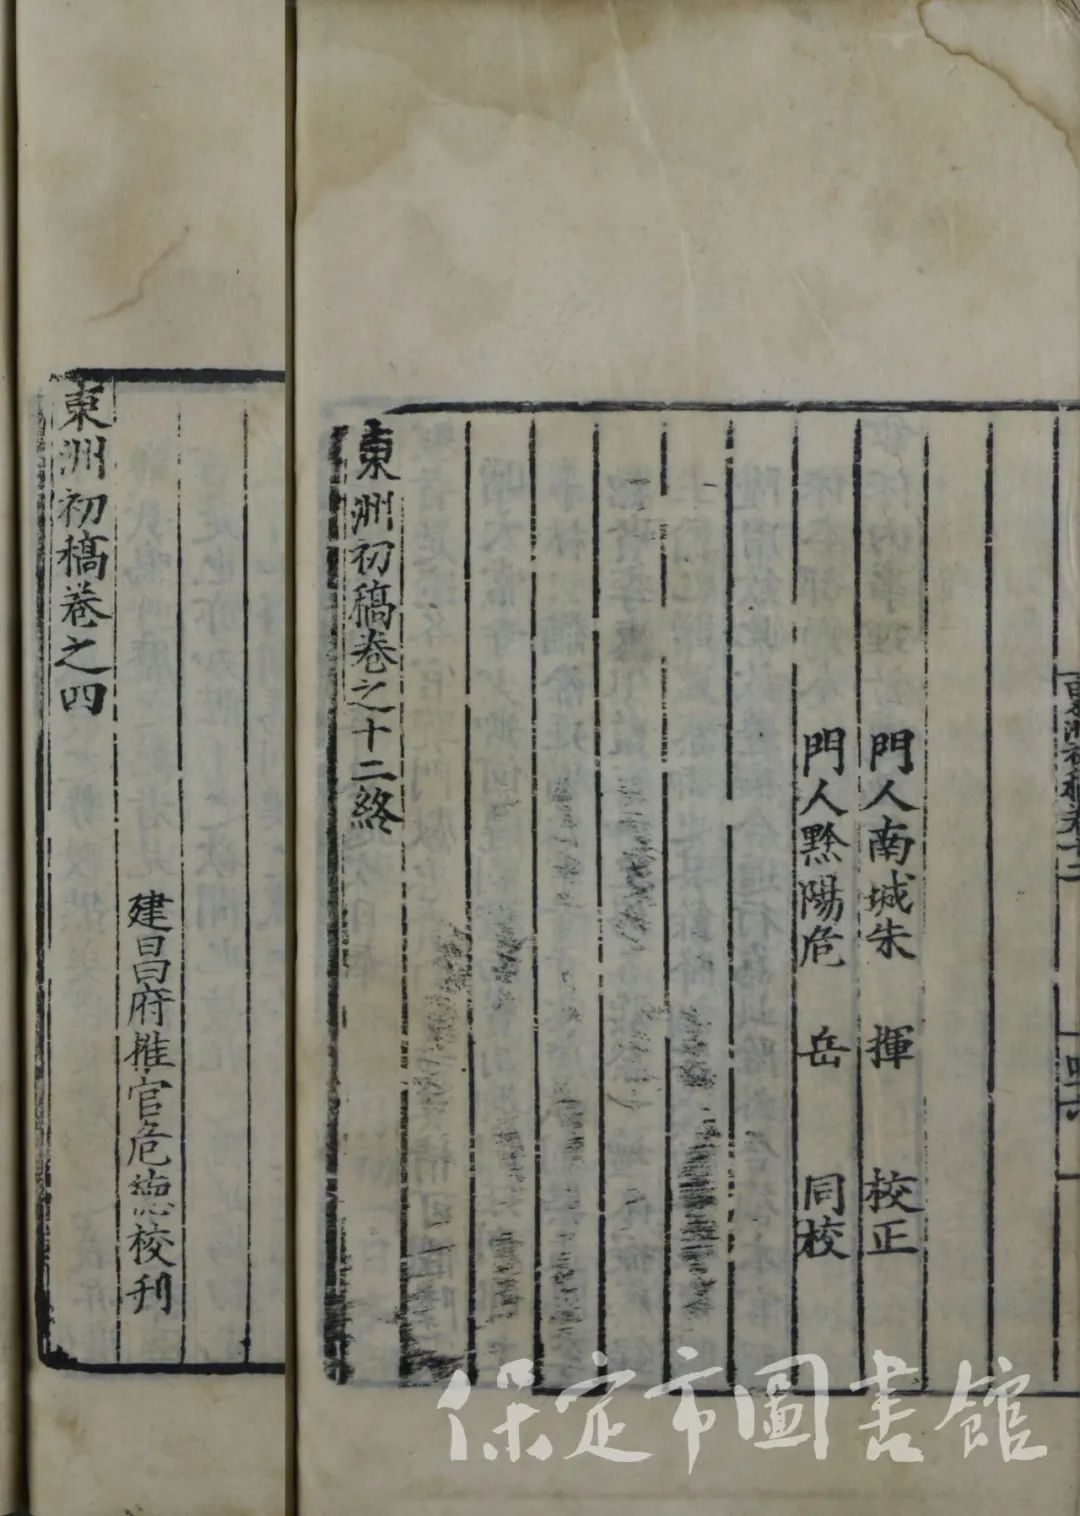 門人南城朱　揮　校正
門人黟陽危　岳　同校
東洲初稿卷之十二終
東洲初稿卷之四
建昌府推官危德校刊
東洲初稿卷十二
四六
保定市圖書館